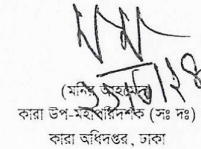 (মনির আহমেদ)
কারা উপ-মহাপরিদর্শক (সঃ দঃ)
কারা অধিদপ্তর, ঢাকা